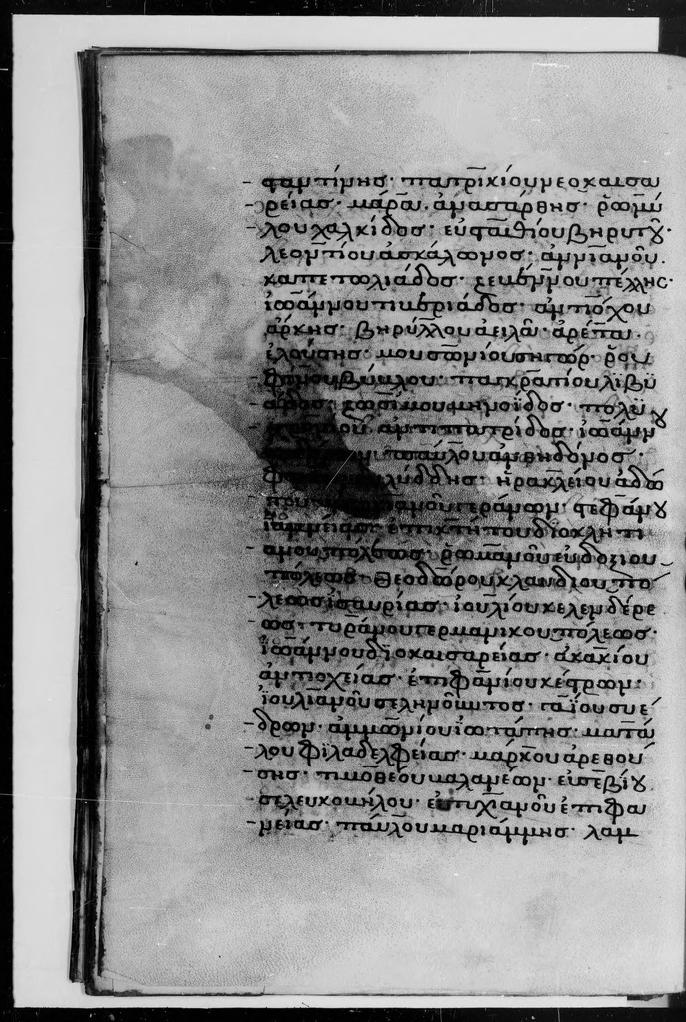 φαντίνης· πατρικίου νεοκαισα
ρείας· μάρα ἀνασάρθης· ῥωμύ
λου χαλκίδος· εὐσταθίου βηρυτοῦ·
λεοντίου ἀσκάλωνος· ἀμμιανοῦ
καππετωλιάδος· ζευέννου πέλλης·
ἰωάννου τιβεριάδος· ἀντιόχου
ἄρκης· βηρύλλου ἀειλᾶ· ἀρέτα
ἐλούσης· μουσωνίου σητώρ· ῥου
φίνου βύβλου· παγκρατίου λιβυ
άδος· ζωσίμου μηνοΐδος· πολυ
ἀντιπατρίδος· ἰωάνν
παύλου ἀνθηδόνος·
λύδδης· ἡρακλείου ἀζώ
του γεράρων· στεφάνου
ἰαμνείας· ἐπικτήτου διοκλητι
ανουπόλεως· ῥωμανοῦ εὐδοξιου
πόλεως· θεοδώρου κλαυδιουπο
λεως ἰσαυρίας· ἰουλίου κελενδέρε
ως· τυράνου γερμανικουπόλεως·
ἰωάννου διοκαισαρείας· ἀκακίου
ἀντιοχείας· ἐπιφανίου κέστρων·
ἰουλιανοῦ σεληνοῦντος· γαΐου συέ
δρων· ἀμμωνίου ἰωτάπης· ματά
λου φιλαδελφείας· μάρκου ἀρεθού
σης· τιμοθέου βαλανέων· εὐσεβίου
σελευκοβήλου· εὐτυχιανοῦ ἐπιφα
νείας· παύλου μαριάμμης· λαμ